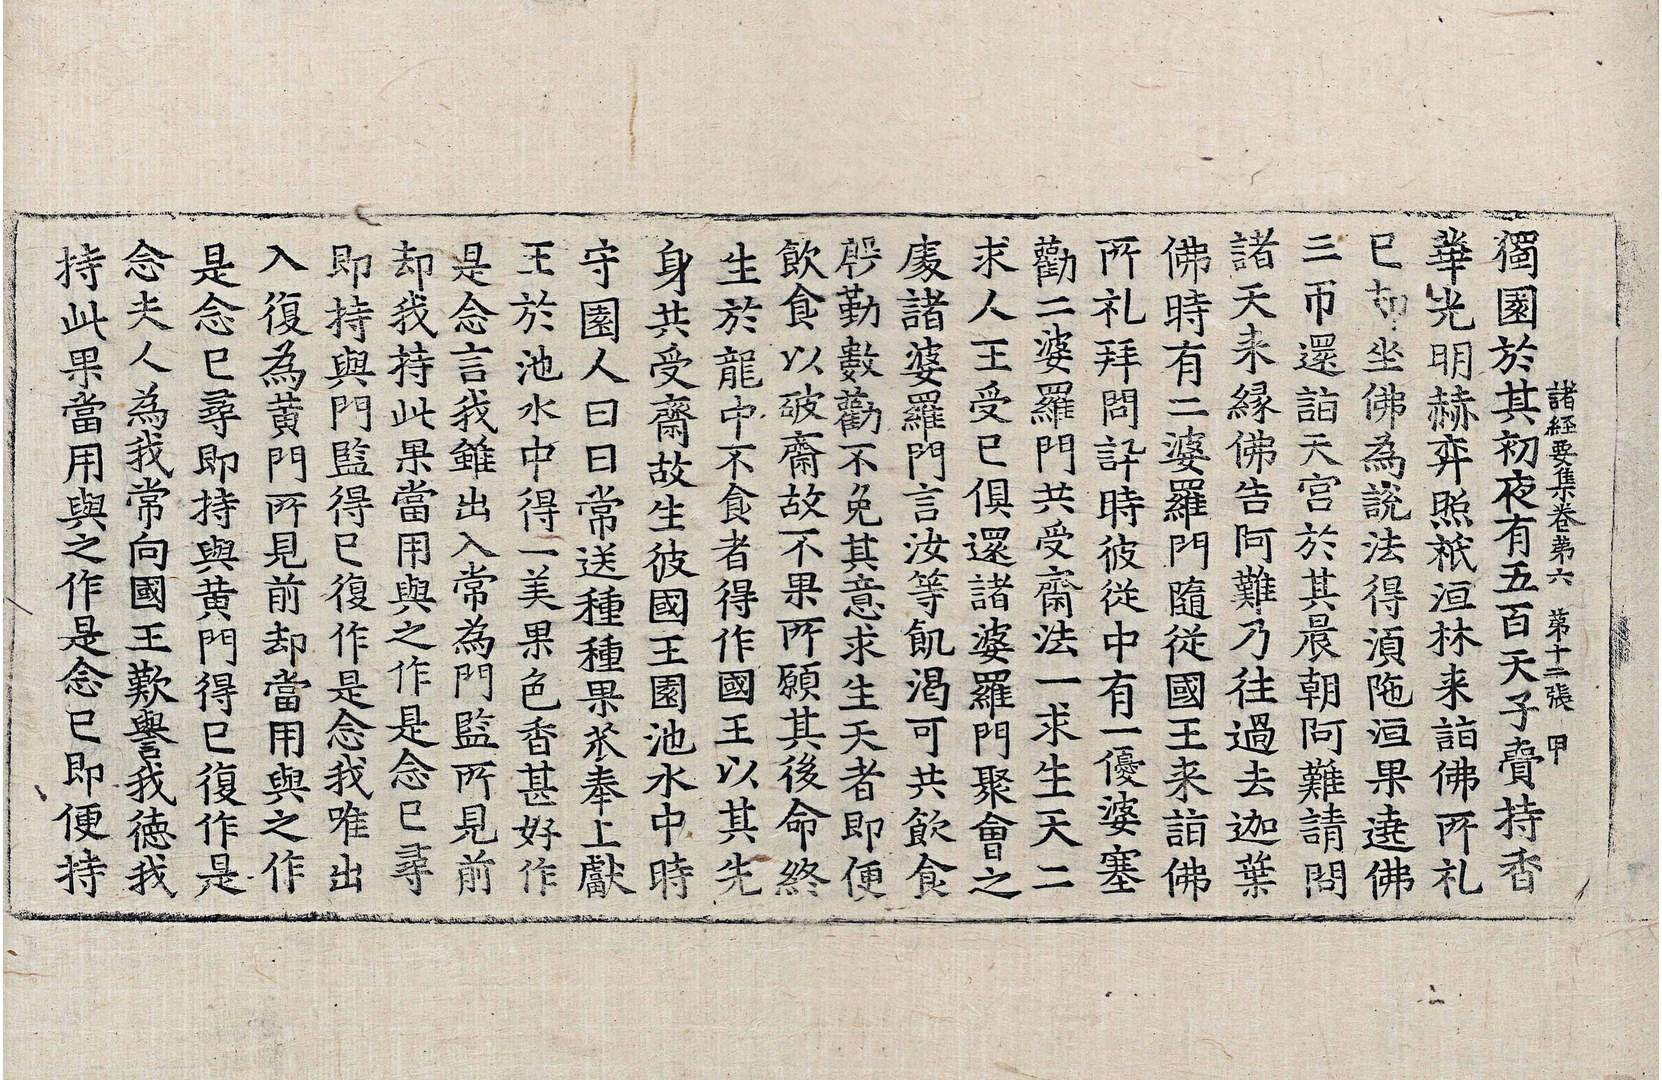 諸經要集卷第六　第十二張　甲
獨園於其初夜有五百天子賷持香
華光明赫弈照祇洹林来詣佛所礼
已却坐佛為說法得湏陁洹果遶佛
三帀還詣天宫於其晨朝阿難請問
諸天来縁佛告阿難乃往過去迦葉
佛時有二婆羅門隨從國王来詣佛
所礼拜問訊時彼從中有一優婆塞
勸二婆羅門共受齋法一求生天二
求人王受已俱還諸婆羅門聚會之
處諸婆羅門言汝等飢渴可共飲食
慇勤數勸不免其意求生天者即便
飲食以破齋故不果所願其後命終
生於龍中不食者得作國王以其先
身共受齋故生彼國王園池水中時
守園人日日常送種種果蓏奉上獻
王於池水中得一美果色香甚好作
是念言我雖出入常為門監所見前
却我持此果當用與之作是念已尋
即持與門監得已復作是念我唯出
入復為黄門所見前却當用與之作
是念已尋即持與黄門得已復作是
念夫人為我常向國王歎譽我德我
持此果當用與之作是念已即便持